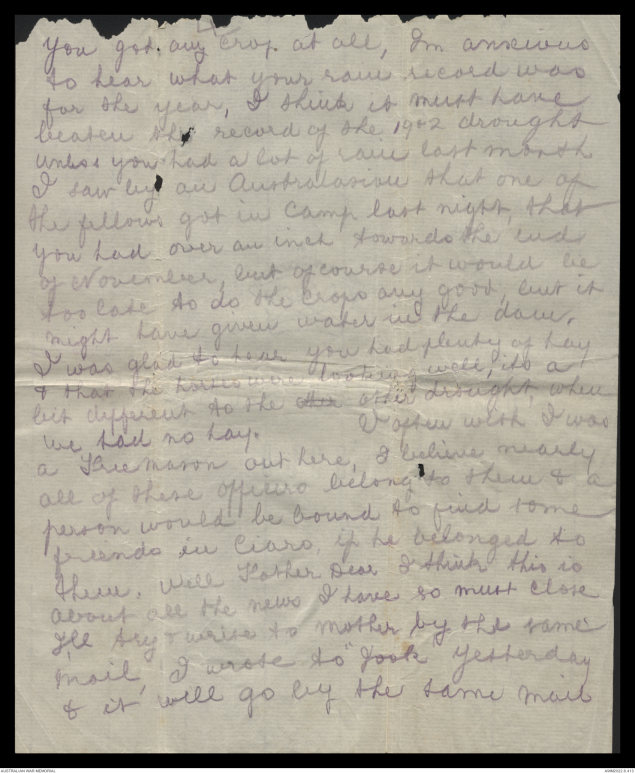 you got any crop at all, Im anxious
to hear what your rain record was
for the year, I think it must have
beaten the record of the 1902 drought
unless you had a lot of rain last month
I saw by an Australasian that one of
the fellows got in Camp last night, that
you had over an inch towards the end
of November, but ofcourse it would be
too late to do the crops any good, but it
might have given water in the dam.
I was glad to hear you had plenty of hay
& that the horses were looking well, its a
bit different to the other drought, when
we had no hay. I often wish I was
a Freemason out here, I believe nearly
all of these officers belong to them & a
person would be bound to find some
friends in Ciaro, if he belonged to
them. Well Father Dear I think this is
about all the news I have so must close
I'll try & write to mother by the same
mail, I wrote to "Jook" yesterday
& it will go by the same mail
AUSTRALIAN WAR MEMORIAL